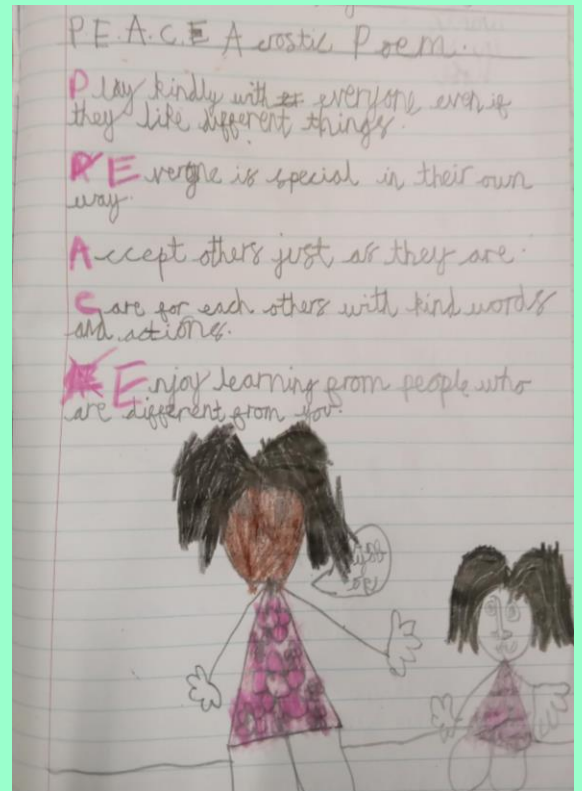 P.E.A.C.E Acrostic Poem.
Play kindly with everyone even if
they like different things.
Everyone is special in their own
way.
Accept others just as they are.
Care for each others with kind words
and actions.
Enjoy learning from people who
are different from you.